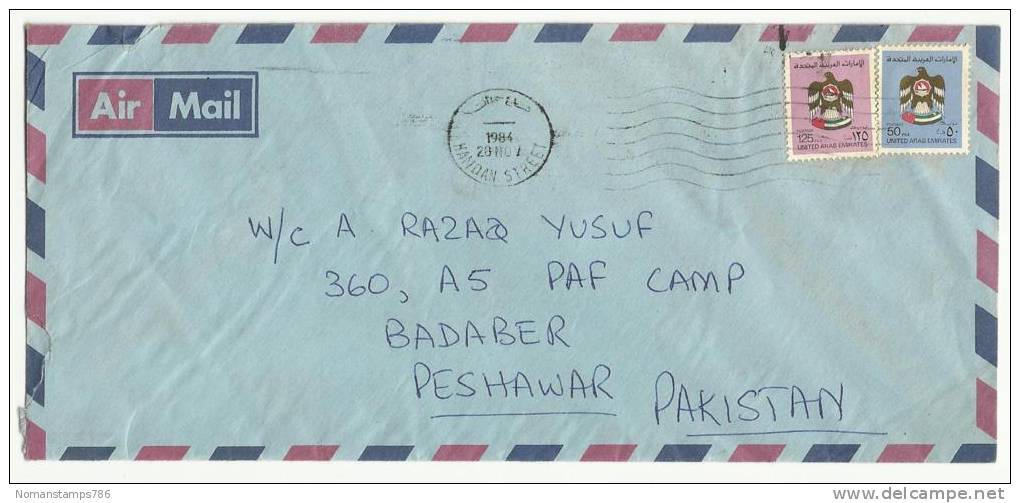 Air Mail
1984
28 NOV
HAMDAN STREET
الإمارات العربية المتحدة
125
١٢٥
UNITED ARAB EMIRATES
الإمارات العربية المتحدة
50
٥٠
UNITED ARAB EMIRATES
W/C A RAZAQ YUSUF
360, A5 PAF CAMP
BADABER
PESHAWAR
PAKISTAN
Nomanstamps786
delcampe.net